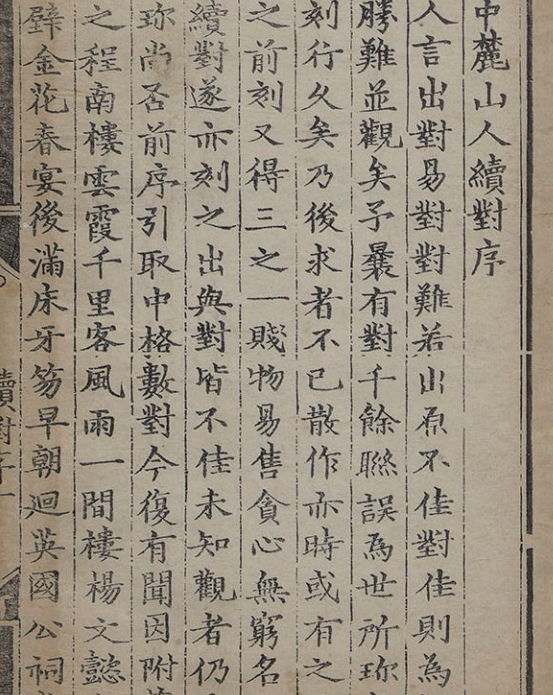 中麓山人續對序
人言出對易對對難若出原不佳對佳則為
勝難並觀矣予曩有對千餘聯誤為世所珍
刻行久矣乃後求者不已散作亦時或有之
之前刻又得三之一賤物易售貪心無窮名
續對遂亦刻之出與對皆不佳未知觀者仍
珍尚否前序引取中格數對今復有聞因附
之程南樓雲霞千里客風雨一間樓楊文懿
金花春宴後滿床牙笏早朝迴英國公祠
續對序一